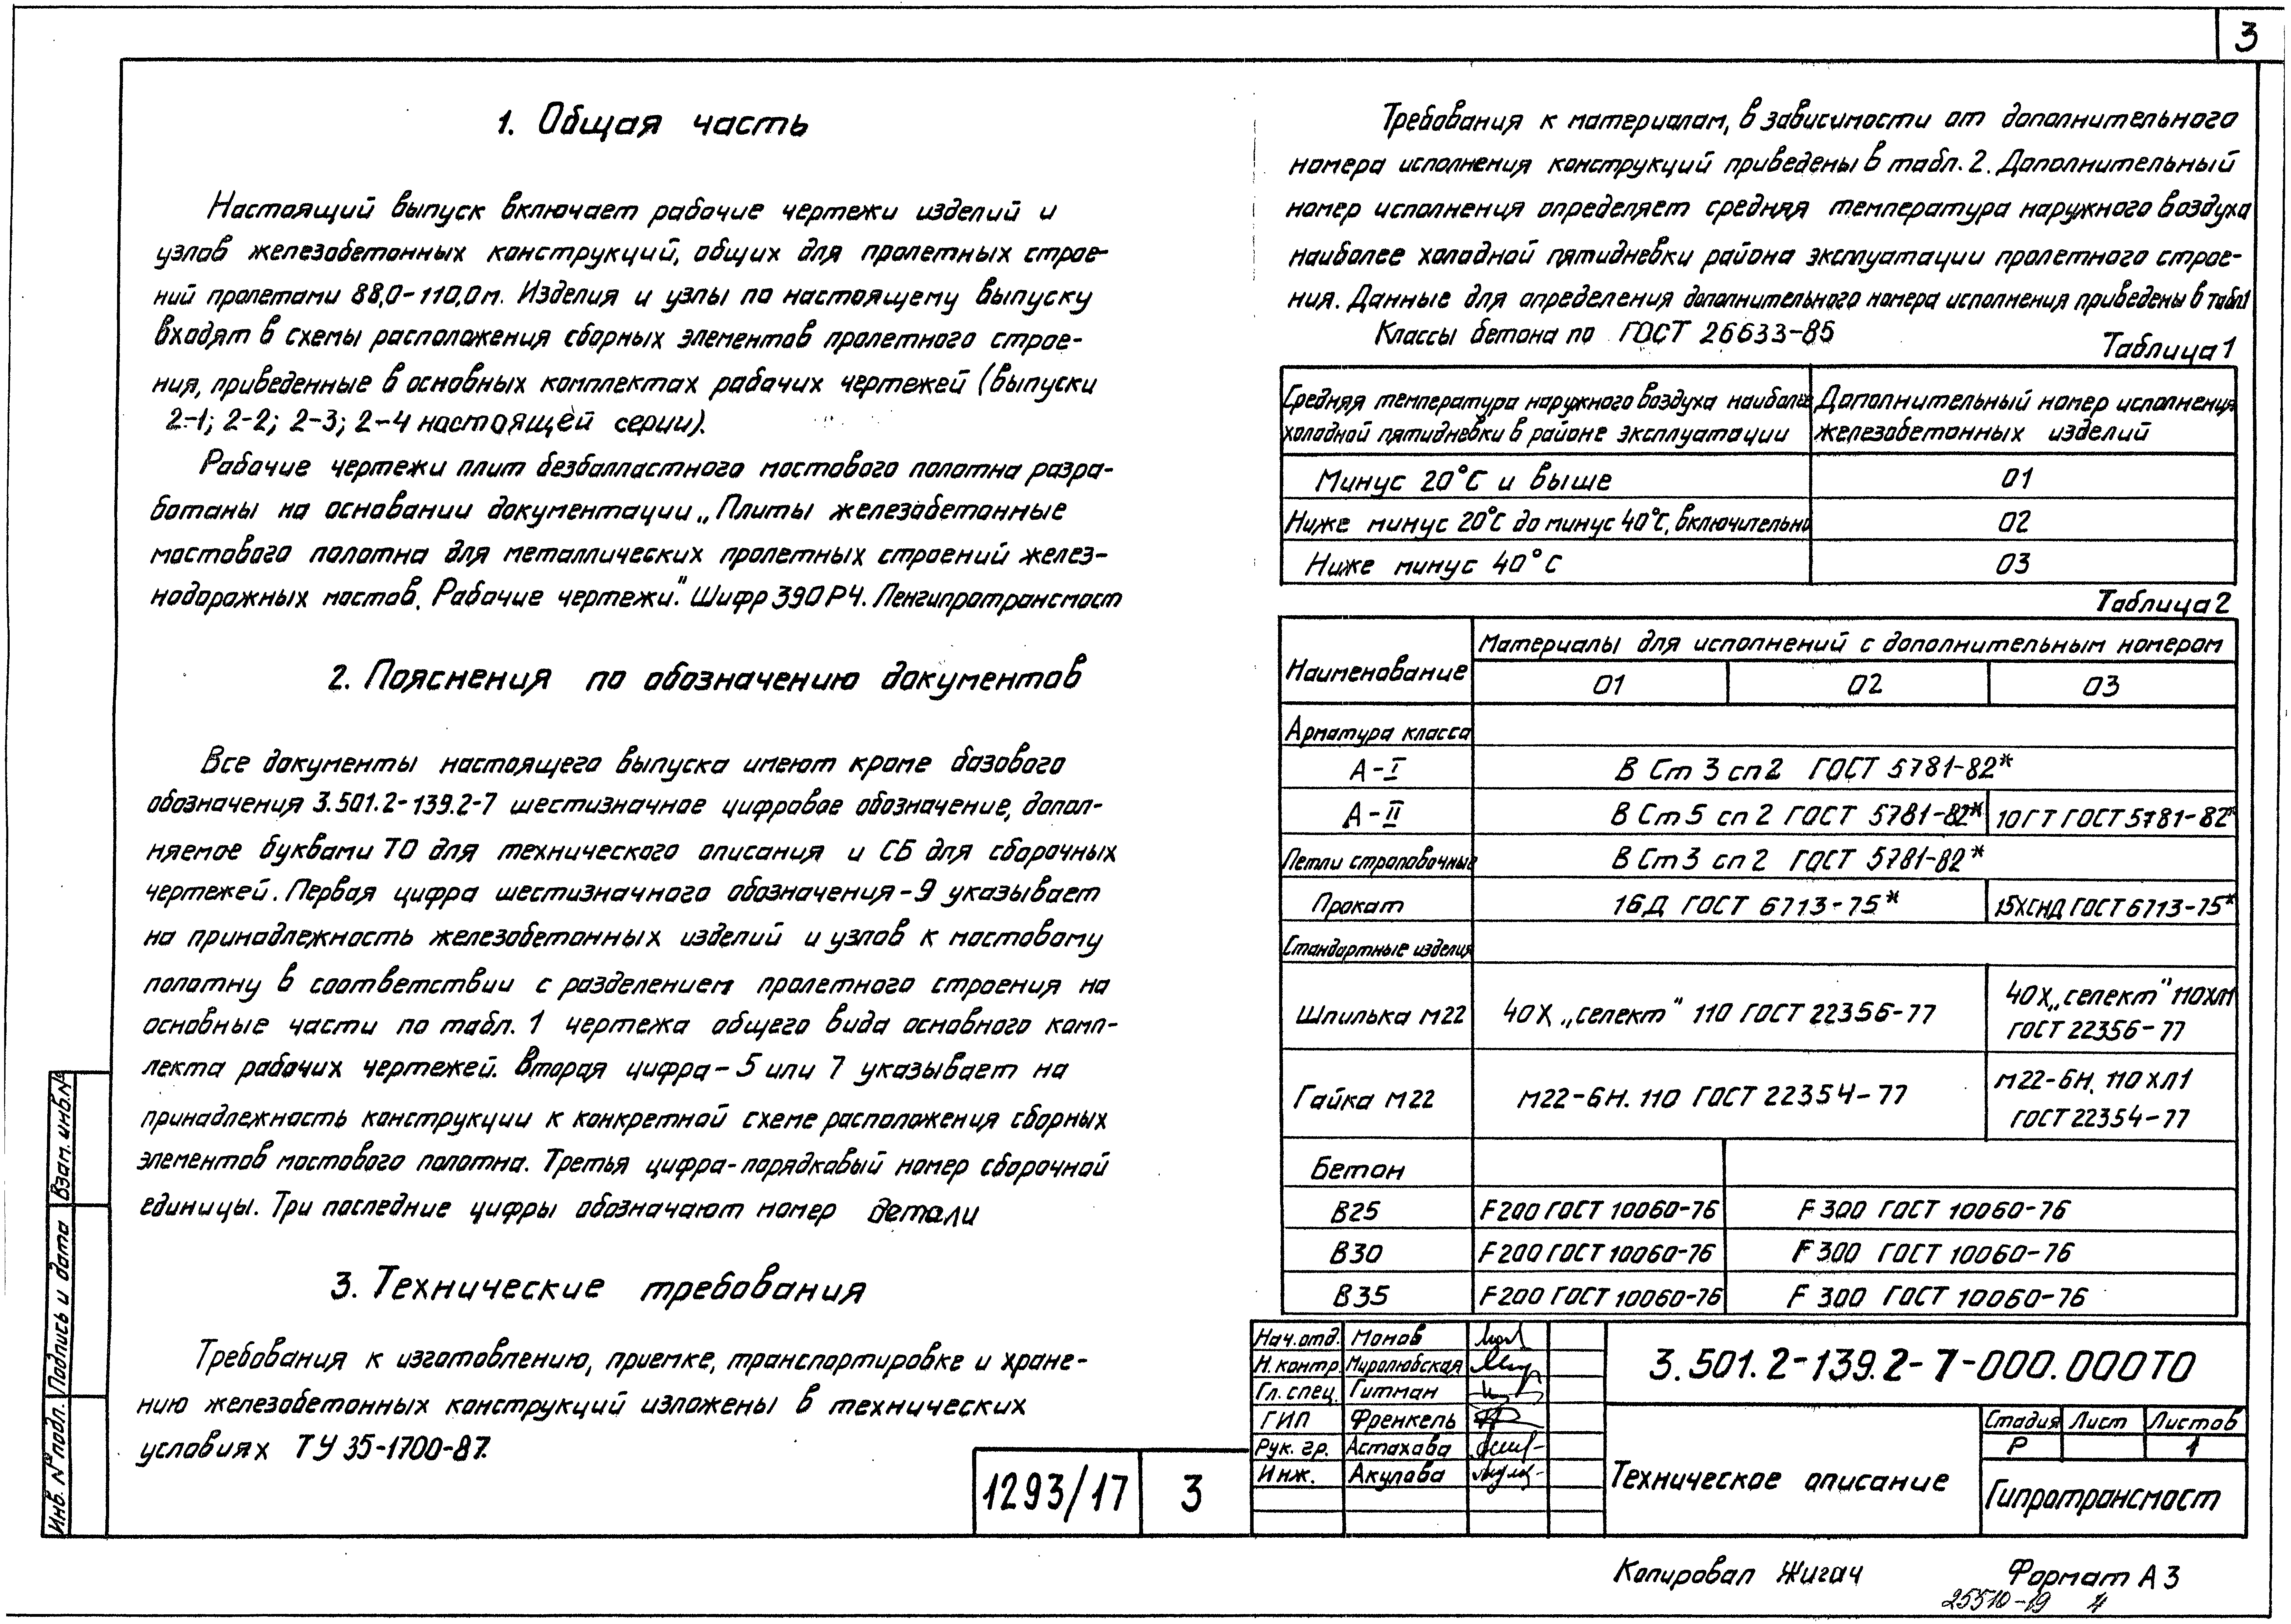 3
1. Общая часть
Настоящий выпуск включает рабочие чертежи изделий и
узлов железобетонных конструкций, общих для пролетных строе-
ний пролетами 88,0-110,0м. Изделия и узлы по настоящему выпуску
входят в схемы расположения сборных элементов пролетного строе-
ния, приведенные в основных комплектах рабочих чертежей (выпуски
2-1; 2-2; 2-3; 2-4 настоящей серии).
Рабочие чертежи плит безбалластного мостового полотна разра-
ботаны на основании документации „Плиты железобетонные
мостового полотна для металлических пролетных строений желез-
нодорожных мостов. Рабочие чертежи". Шифр 390РЧ. Ленгипротрансмост
2. Пояснения по обозначению документов
Все документы настоящего выпуска имеют кроме базового
обозначения 3.501.2-139.2-7 шестизначное цифровое обозначение, допол-
няемое буквами ТО для технического описания и СБ для сборочных
чертежей. Первая цифра шестизначного обозначения-9 указывает
на принадлежность железобетонных изделий и узлов к мостовому
полотну в соответствии с разделением пролетного строения на
основные части по табл. 1 чертежа общего вида основного комп-
лекта рабочих чертежей. Вторая цифра-5 или 7 указывает на
принадлежность конструкции к конкретной схеме расположения сборных
элементов мостового полотна. Третья цифра-порядковый номер сборочной
единицы. Три последние цифры обозначают номер детали
3. Технические требования
Требования к изготовлению, приемке, транспортировке и хране-
нию железобетонных конструкций изложены в технических
условиях ТУ 35-1700-87.
Требования к материалам, в зависимости от дополнительного
номера исполнения конструкций приведены в табл. 2. Дополнительный
номер исполнения определяет средняя температура наружного воздуха
наиболее холодной пятидневки района эксплуатации пролетного строе-
ния. Данные для определения дополнительного номера исполнения приведены в табл1
Классы бетона по ГОСТ 26633-85
Таблица 1
Средняя температура наружного воздуха наиболее Дополнительный номер исполнения
холодной пятидневки в районе эксплуатации железобетонных изделий
Минус 20°С и выше 01
Ниже минус 20°С до минус 40°С, включительно 02
Ниже минус 40°С 03
Таблица 2
Наименование Материалы для исполнений с дополнительным номером
01 02 03
Арматура класса
А-I В Ст 3 сп2 ГОСТ 5781-82*
А-II В Ст 5 сп 2 ГОСТ 5781-82* 10ГТ ГОСТ 5781-82*
Петли строповочные В Ст 3 сп 2 ГОСТ 5781-82*
Прокат 16Д ГОСТ 6713-75* 15ХСНД ГОСТ 6713-75*
Стандартные изделия
Шпилька М22 40Х „селект" 110 ГОСТ 22356-77 40Х „селект" 110ХЛ1
ГОСТ 22356-77
Гайка М22 М22-6Н. 110 ГОСТ 22354-77 М22-6Н. 110 ХЛ1
ГОСТ 22354-77
Бетон
В25 F200 ГОСТ 10060-76 F 300 ГОСТ 10060-76
В30 F200 ГОСТ 10060-76 F 300 ГОСТ 10060-76
В35 F200 ГОСТ 10060-76 F 300 ГОСТ 10060-76
Нач.отд. Монов
Н.контр. Миролюбская
Гл. спец. Гитман
ГИП Френкель
Рук. гр. Астахова
Инж. Акулова
3.501.2-139.2-7-000.000ТО
Техническое описание
Стадия Лист Листов
Р 1
Гипротрансмост
1293/17 3
Инв. № подл. Подпись и дата Взам. инв.№
Копировал Жигач Формат А3
25510-19 4